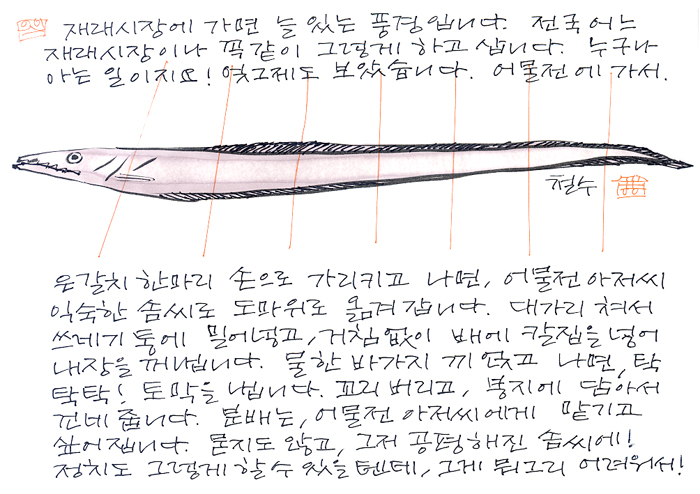 재래시장에 가면 늘 있는 풍경입니다. 전국 어느
재래시장이나 꼭같이 그렇게 하고 삽니다. 누구나
아는 일이지요! 엊그제도 보았습니다. 어물전에 가서.
철수
은갈치 한마리 손으로 가리키고 나면, 어물전 아저씨
익숙한 솜씨로 도마위로 옮겨 갑니다. 대가리 쳐서
쓰레기통에 밀어넣고, 거침없이 배에 칼집을 넣어
내장을 꺼냅니다. 물 한 바가지 끼얹고 나면, 탁
탁탁! 토막을 냅니다. 꼬리 버리고, 봉지에 담아서
건네 줍니다. 분배는, 어물전 아저씨에게 맡기고
싶어집니다. 묻지도 않고, 그저 공평해진 솜씨에!
정치도 그렇게 할 수 있을텐데, 그게 뭐그리 어려워서!